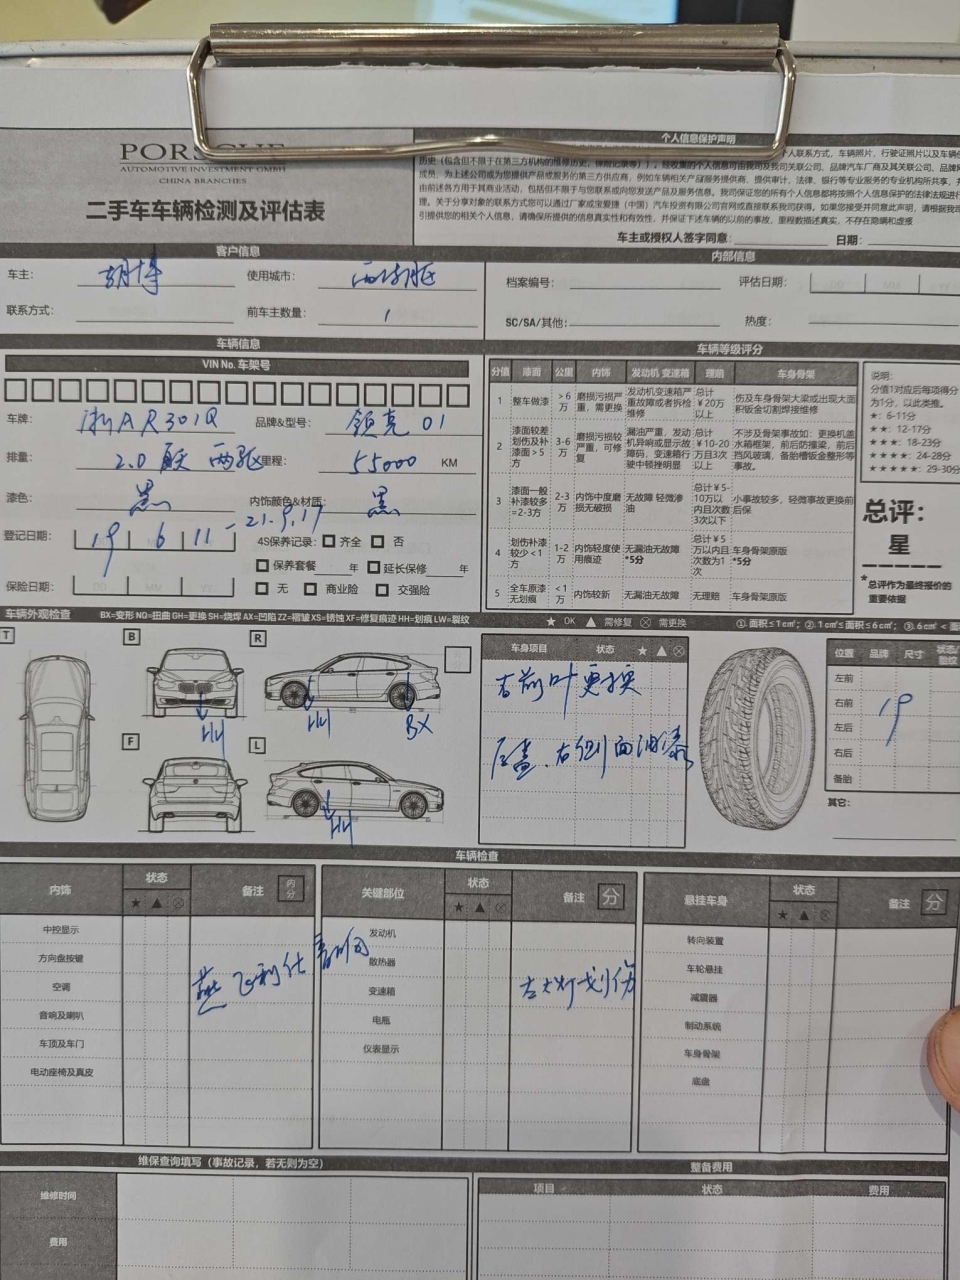 PORSCHE
AUTOMOTIVE INVESTMENT GMBH
CHINA BRANCHES
二手车车辆检测及评估表
个人信息保护声明
人联系方式，车辆照片，行驶证照片以及车辆使
历史（包含但不限于在第三方机构的维修历史，保险记录等）)，经收集的个人信息可由我司及我司关联公司、品牌汽车厂商及其关联公司、品牌
成员，为上述公司或为您提供产品或服务的第三方供应商，例如车辆相关产品服务提供商、提供审计、法律、银行等专业服务的专业机构所共享，并
由前述各方用于其商业活动，包括但不限于与您联系或向您发送产品及服务信息。我司保证您的所有个人信息都将按照个人信息保护的法律法规进行
理。关于分享对象的联系方式您可以通过厂家或宝爱捷（中国）汽车投资有限公司官网或直接联系我司获得，如果您接受并同意此声明，请根据我
引提供您的相关个人信息，请确保所提供的信息真实性和有效性，并保证下述车辆的以前的事故，里程数描述真实，不存在隐瞒和虚报
车主或授权人签字同意： 日期：
客户信息 内部信息
车主： 胡博 使用城市：
档案编号： 评估日期：
联系方式： 前车主数量： 1
SC/SA/其他： 热度：
车辆信息 车辆等级评分
VIN No. 车架号
车牌： 浙A R301Q 品牌&型号： 领克 01
排量： 2.0 两驱 里程： 55000 KM
漆色： 黑 内饰颜色&材质： 黑
登记日期： 19 6 11 - 21.9.17 4S保养记录： 齐全 否
保养套餐 年 延长保修 年
保险日期： 无 商业险 交强险
分值 漆面 公里 内饰 发动机 变速箱 理赔 车身骨架
1 整车做漆 >6万 磨损污损严重，需更换 发动机变速箱严重故障或者拆检维修 总计￥20万以上 伤及车身骨架大梁或出现大面积钣金切割焊接维修
2 漆面较差划伤及补漆面>5方 3-6万 磨损污损较严重，可修复 漏油严重，发动机异响或显示故障码，变速箱行驶中顿挫明显 总计￥10-20万且3次以上 不涉及骨架事故如：更换机盖水箱框架，前后防撞梁，前后挡风玻璃，备胎槽钣金整形等事故。
3 漆面一般补漆较多=2-3方 2-3万 内饰中度磨损无破损 无故障 轻微渗油 总计￥5-10万以内且次数3次以下 小事故较多，轻微事故更换前后保
4 划伤补漆较少<1方 1-2万 内饰轻度使用痕迹 无漏油无故障 *5分 总计￥5万以内且次数为1次 车身骨架原版 *5分
5 全车原漆无划痕 <1万 内饰较新 无漏油无故障 无理赔 车身骨架原版
说明：
分值1对应后每项得分为1分，以此类推。
★：6-11分
★★：12-17分
★★★：18-23分
★★★★：24-28分
★★★★★：29-30分
总评：
星
*总评作为最终报价的重要依据
车辆外观检查 BX=变形 NQ=扭曲 GH=更换 SH=烧焊 AX=凹陷 ZZ=褶皱 XS=锈蚀 XF=修复痕迹 HH=划痕 LW=裂纹 ★ OK ▲ 需修复 ⊗ 需更换 ①. 面积≤1c㎡；②. 1c㎡≤面积≤6c㎡；③. 6c㎡<面
T B R
HH HH BX
F L
HH
车身项目 状态 ★ ▲ ⊗
右前叶更换
后盖、右侧面油漆
位置 品牌 尺寸
左前
右前
左后
右后
备胎
19
其它：
车辆检查
内饰 状态 备注 内分
★ ▲ ⊗
中控显示
方向盘按键
空调
音响及喇叭
车顶及车门
电动座椅及真皮
关键部位 状态 备注 分
★ ▲ ⊗
发动机
散热器
变速箱
电瓶
仪表显示
左大灯划伤
悬挂车身 状态 备注 分
★ ▲ ⊗
转向装置
车轮悬挂
减震器
制动系统
车身骨架
底盘
维保查询填写（事故记录，若无则为空） 整备费用
维修时间
费用
项目 状态 费用